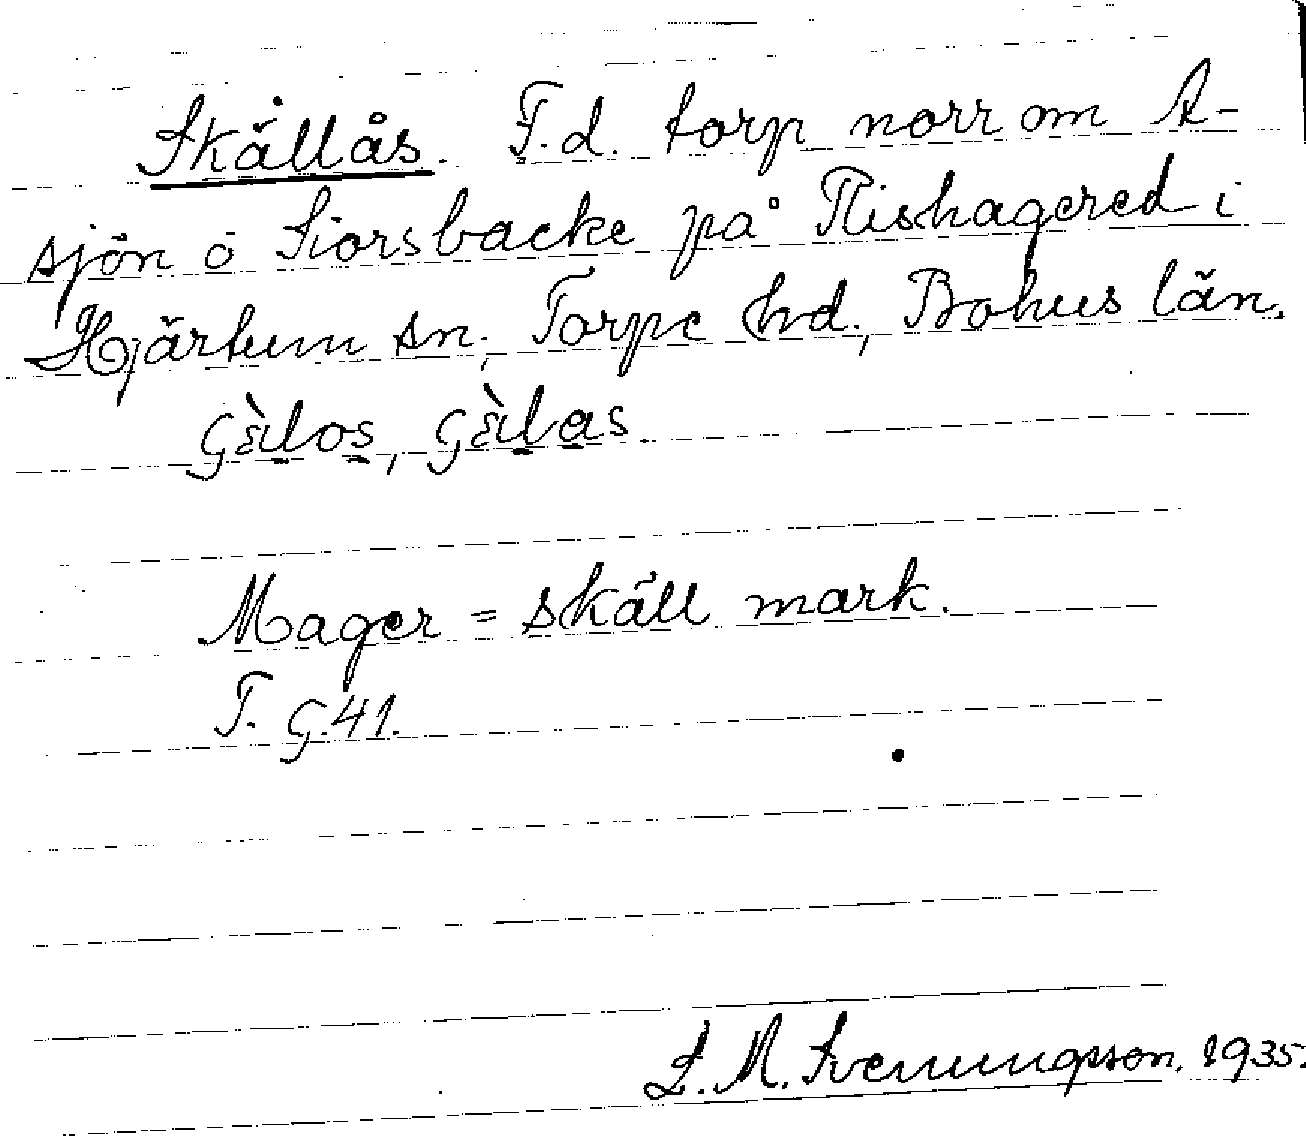 Skällås. F.d. torp norr om A-
sjön ö Siorsbacke på Flishagered i
Hjärtum sn, Torpe hd., Bohus län.
Mager = skäll mark.
T. G.41.
L. M. Svenungsson. 1935.